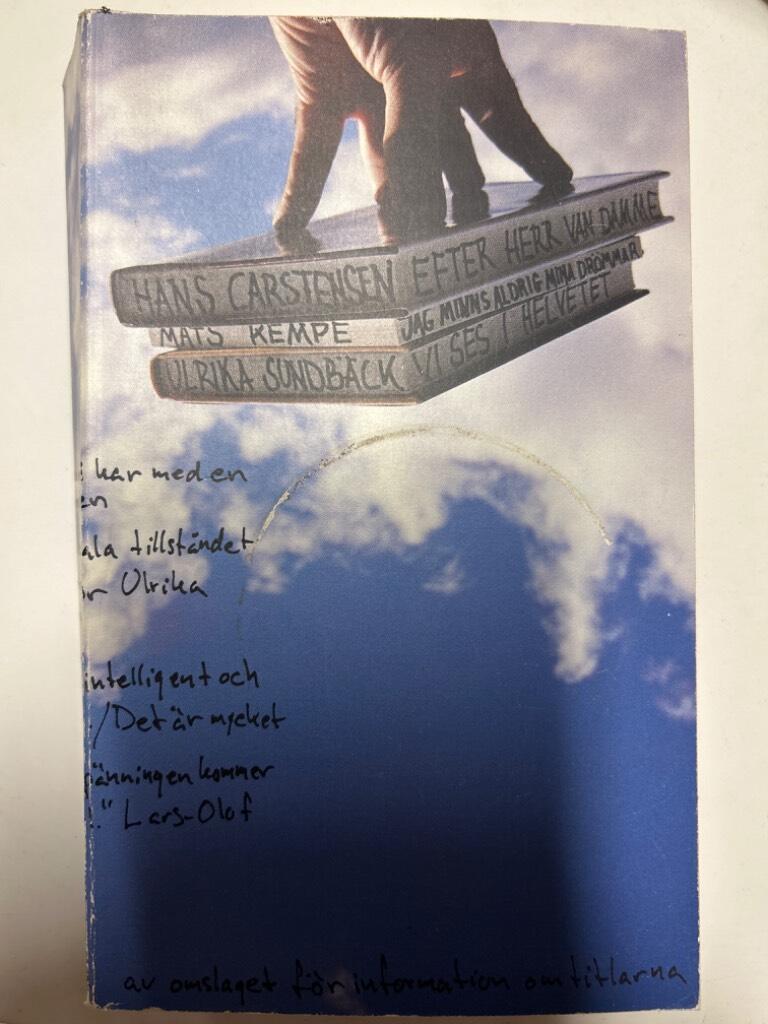 HANS CARSTENSEN EFTER HERR VAN DAMME
MATS KEMPE JAG MINNS ALDRIG MINA DRÖMMAR
ULRIKA SUNDBÄCK VI SES I HELVETET
i har med en
en
ala tillståndet
or Ulrika
intelligent och
./Det är mycket
pänningen kommer
!." Lars-Olof
av omslaget för information om titlarna